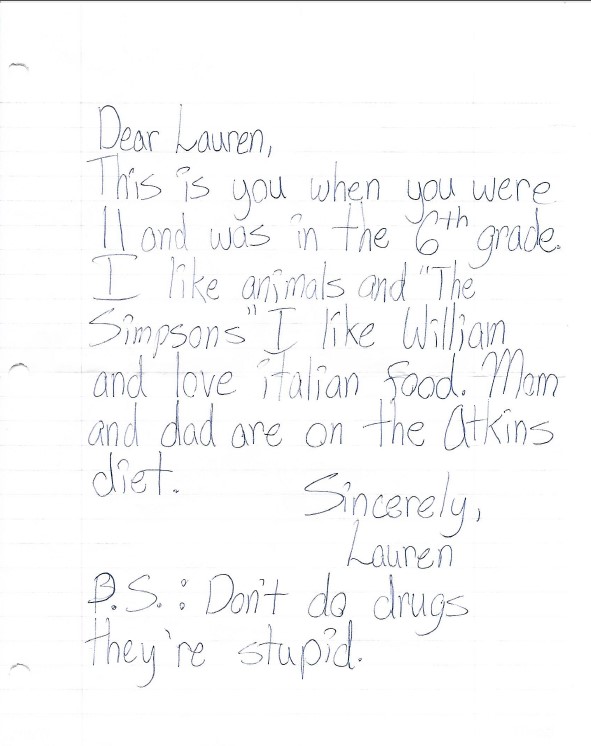 Dear Lauren,
This is you when you were
11 and was in the 6th grade.
I like animals and "The
Simpsons" I like William
and love italian food. Mom
and dad are on the Atkins
diet.
Sincerely,
Lauren
P.S.: Don't do drugs
they're stupid.